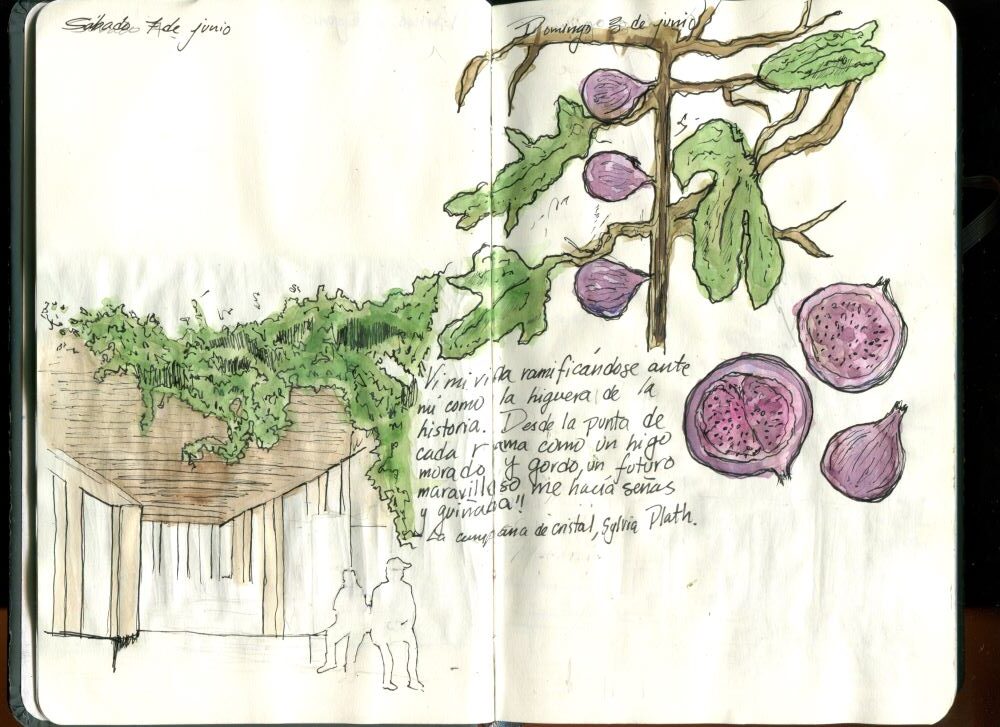 Sábado 1 de junio
Domingo 2 de junio
Vi mi vida ramificándose ante
mí como la higuera de la
historia. Desde la punta de
cada rama como un higo
morado y gordo, un futuro
maravilloso me hacía señas
y guiñaba"!
La campana de cristal, Sylvia Plath.